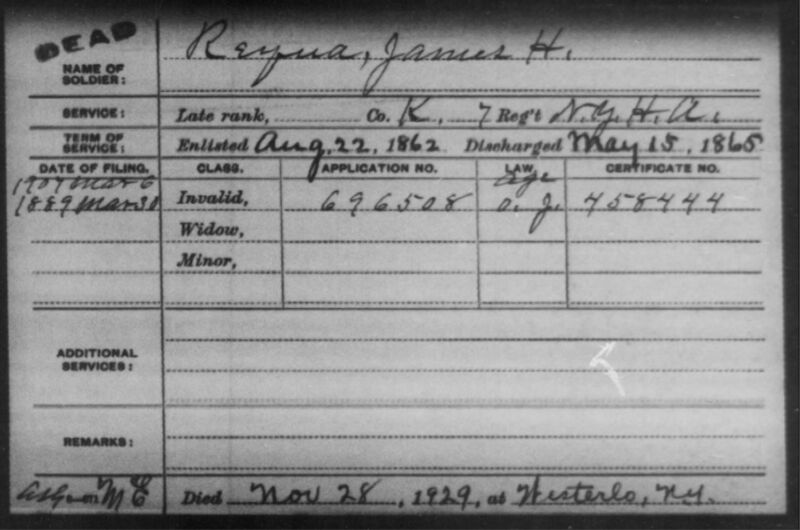 DEAD
NAME OF SOLDIER: Requa, James H.
SERVICE: Late rank, Co. K, 7 Reg't N.Y.H.A.
TERM OF SERVICE: Enlisted Aug. 22, 1862 Discharged May 15, 1865
DATE OF FILING. CLASS. APPLICATION NO. LAW. CERTIFICATE NO.
1907 Mar 6 age
1889 Mar 30 Invalid, 696508 o. j. 458444
Widow,
Minor,
ADDITIONAL SERVICES:
REMARKS:
M E Died Nov 28, 1929, at Westerlo, N.Y.